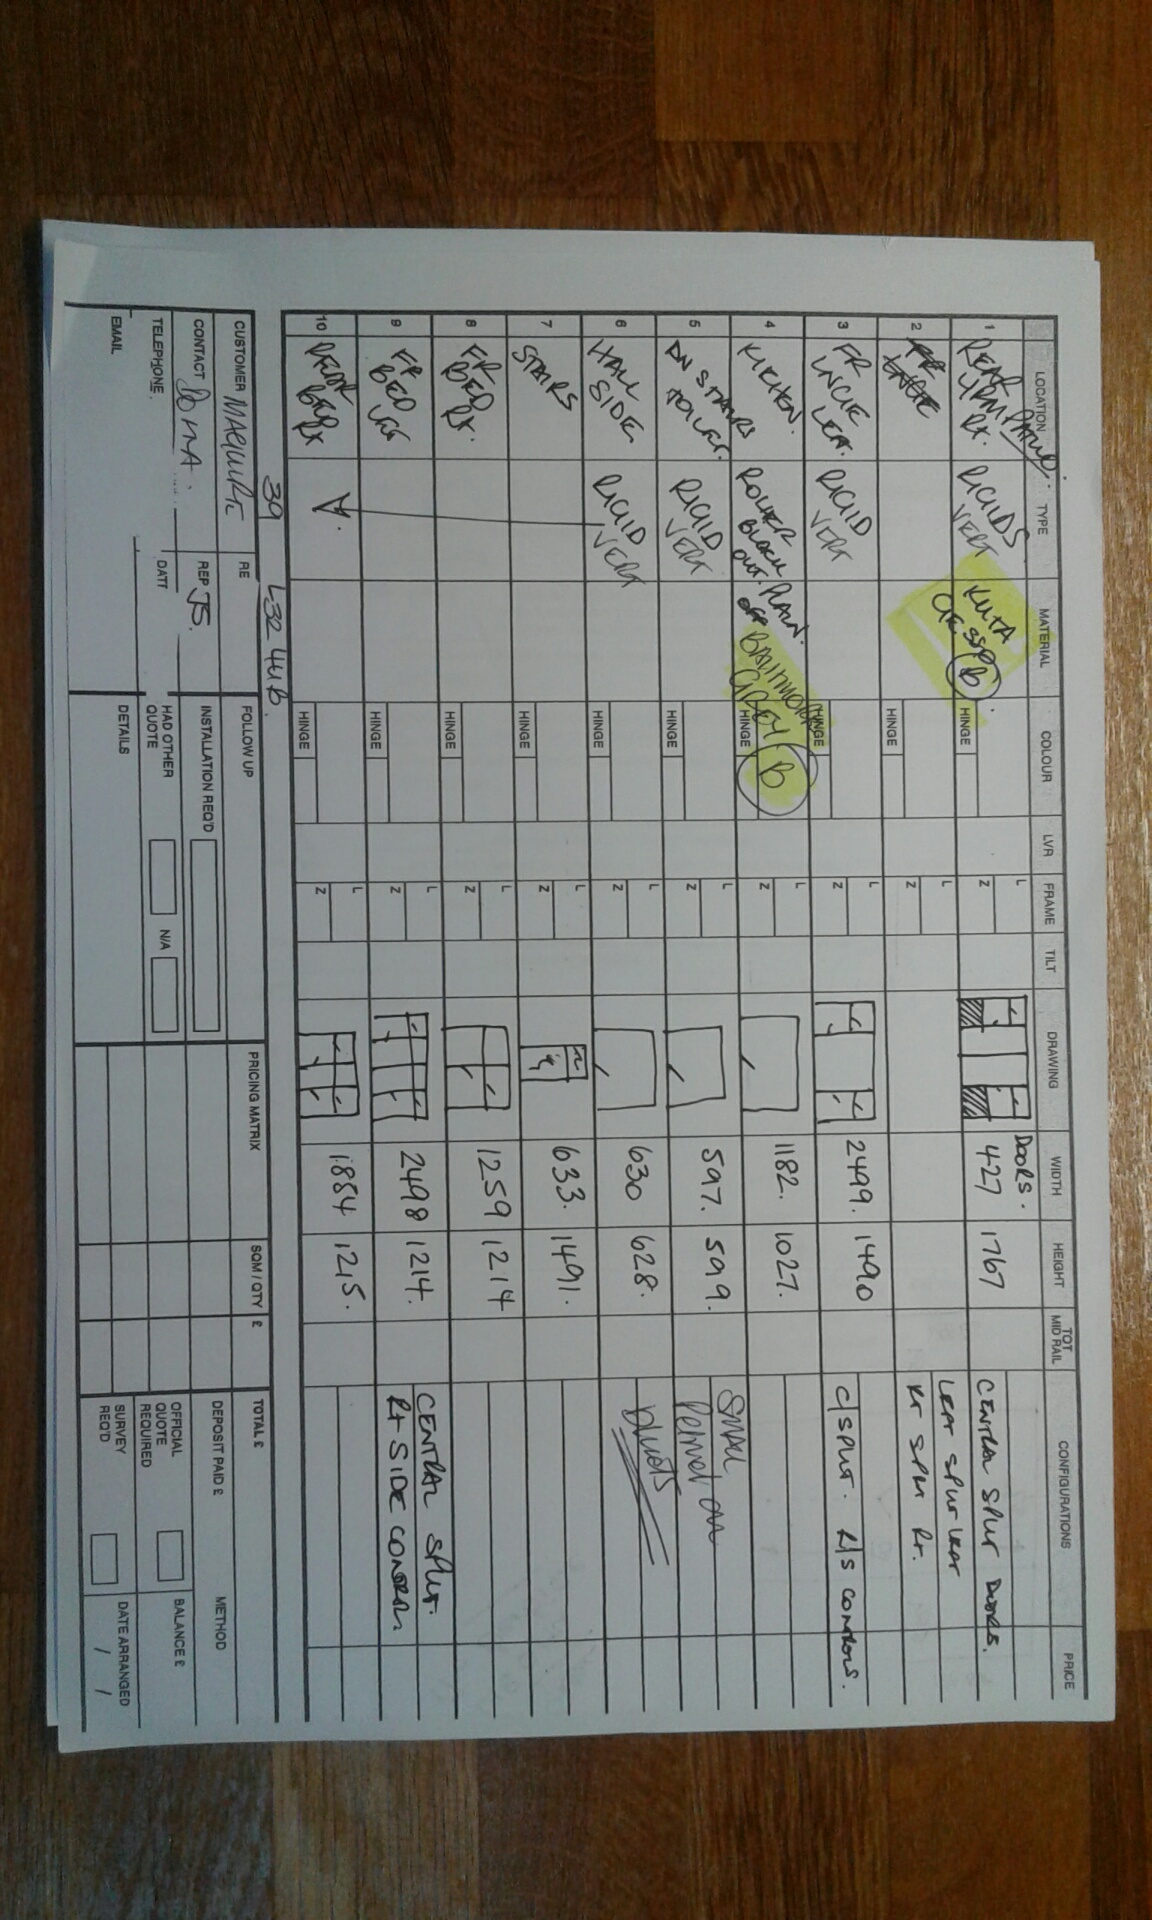 LOCATION TYPE MATERIAL COLOUR LVR FRAME TILT DRAWING WIDTH HEIGHT TOT MID RAIL CONFIGURATIONS PRICE
1 REAR PATIO RIGIDS VERT KUTA B HINGE L Z DOORS. 427 1767 CENTRAL SPLIT DOORS.
2 HINGE L Z LEFT SPLIT LEFT
RT SPLIT RT.
3 FR LEFT. RIGID VERT HINGE L Z 2499. 1490 C/SPLIT. R/S CONTROLS.
4 KITCHEN. ROLLER BLACK OUT. PLAIN. GREY B HINGE L Z 1182. 1027.
5 DN STAIRS TOILET. RIGID VERT HINGE L Z 597. 599. SMALL
6 HALL SIDE. RIGID VERT HINGE L Z 630 628.
7 STAIRS HINGE L Z 633. 1491.
8 FR BED RT. HINGE L Z 1259 1214
9 FR BED LEFT HINGE L Z 2498 1214. CENTRAL SPLIT.
RT SIDE CONTROL
10 REAR BED RT HINGE L Z 1884 1215.
39 L32 4UB.
CUSTOMER RE FOLLOW UP PRICING MATRIX SQM / QTY £ TOTAL £
CONTACT REP JS. INSTALLATION REQ'D DEPOSIT PAID £ METHOD
TELEPHONE DATE HAD OTHER QUOTE N/A OFFICIAL QUOTE REQUIRED BALANCE £
EMAIL DETAILS SURVEY REQ'D DATE ARRANGED / /